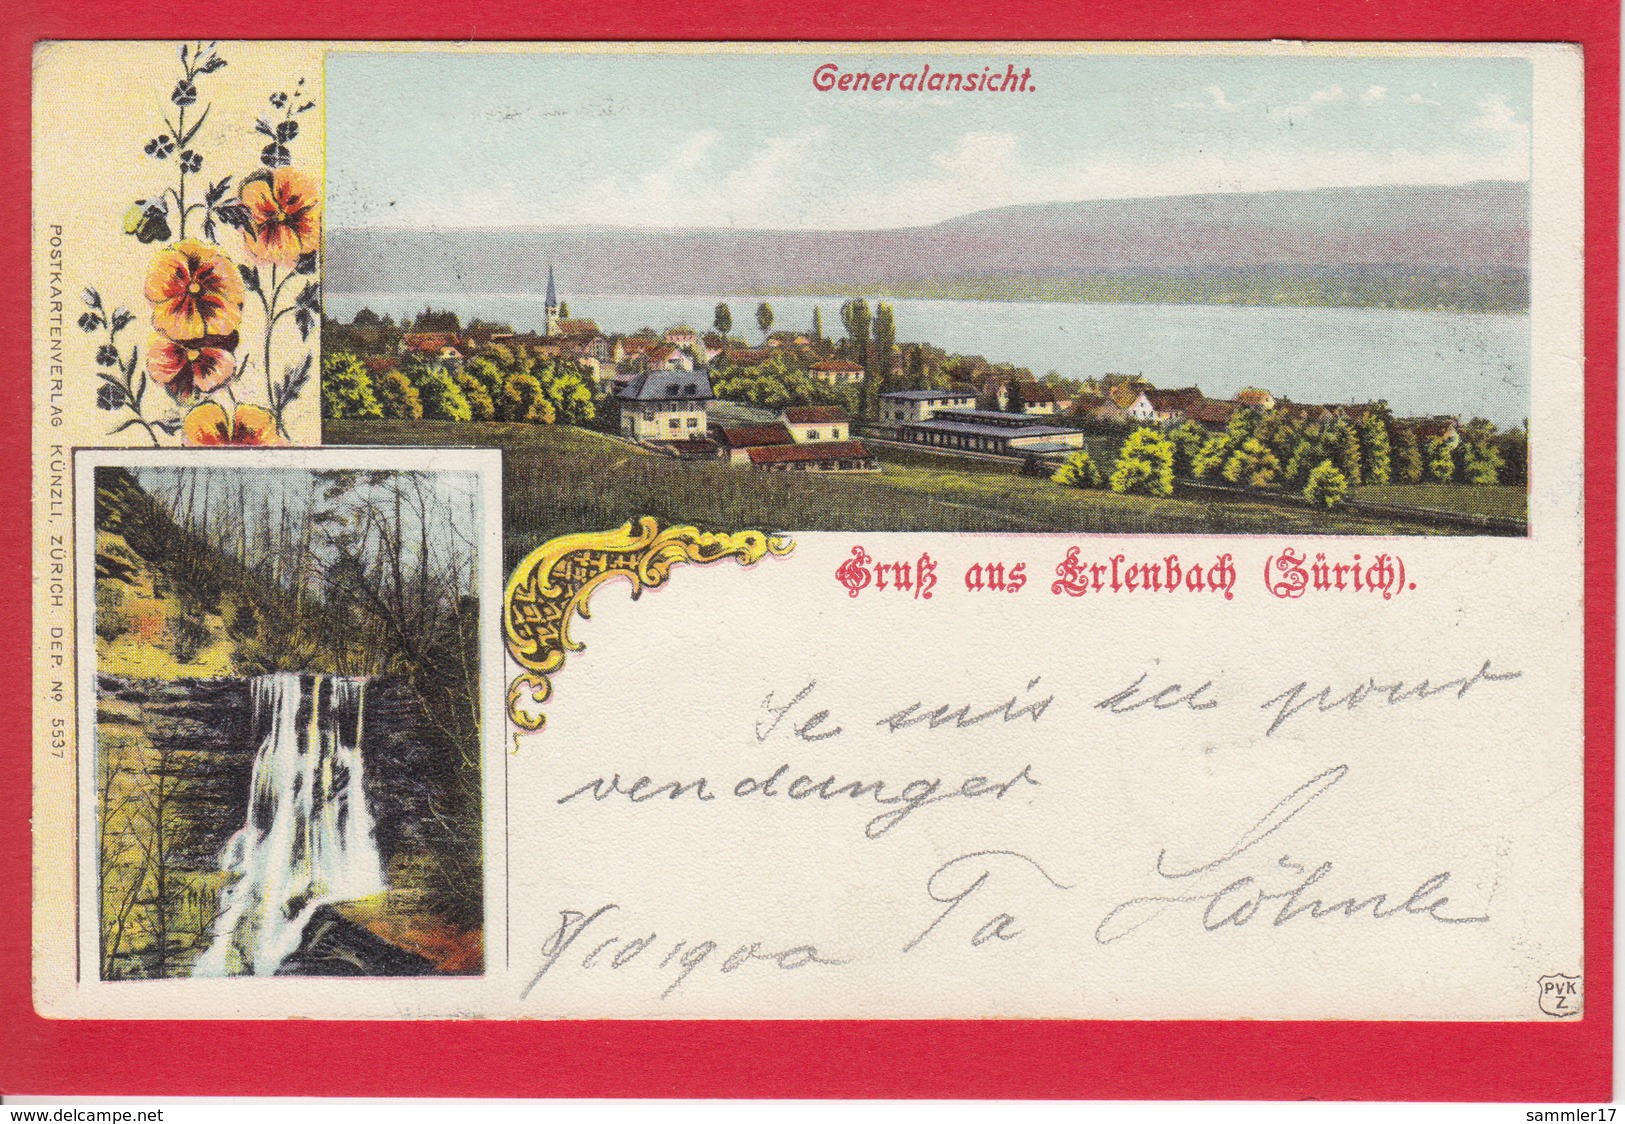 Generalansicht.
POSTKARTENVERLAG KÜNZLI, ZÜRICH. DEP. Nº 5537
Gruß aus Erlenbach (Zürich).
Je suis ici pour
vendanger
Ta Löhnle
8/10 1900
PVK
Z
www.delcampe.net
sammler17